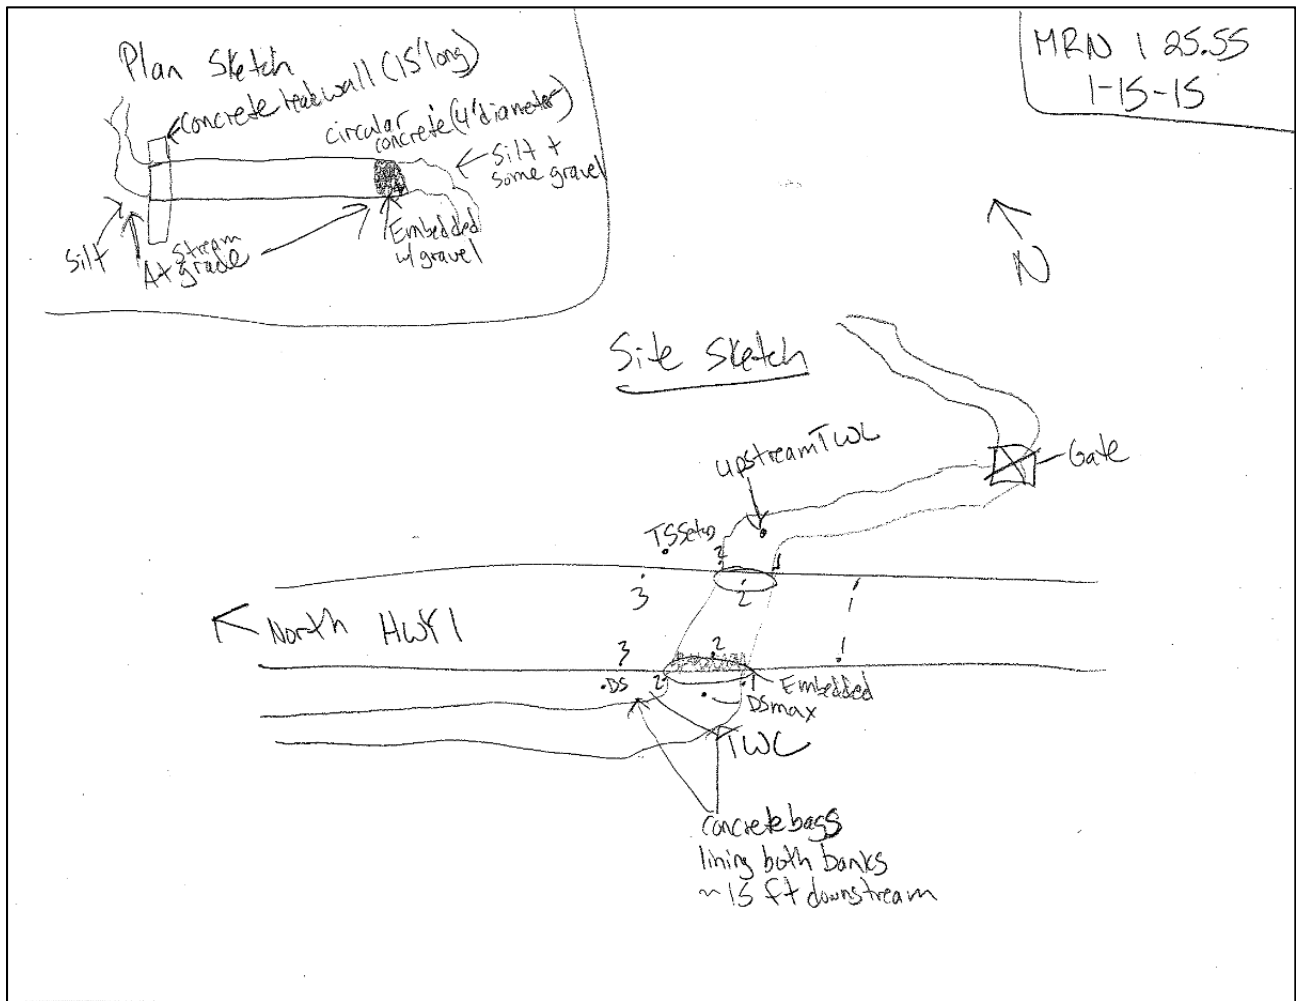 Plan Sketch
Concrete headwall (15' long)
circular
concrete (4' diameter)
Silt +
some gravel
Silt
At stream
grade
Embedded
w/ gravel
MRN 1 25.55
1-15-15
N
Site Sketch
upstream TWC
Gate
TS Setup
2
1
3
2
1
North HWY 1
3
2
1
DS
2
1
Embedded
DS max
TWC
concrete bags
lining both banks
~ 15 ft downstream